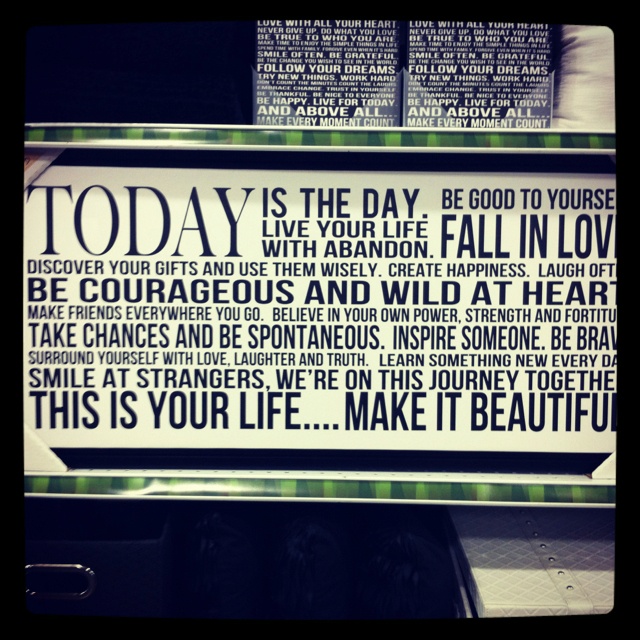 LOVE WITH ALL YOUR HEART
NEVER GIVE UP. DO WHAT YOU LOVE
BE TRUE TO WHO YOU ARE
MAKE TIME TO ENJOY THE SIMPLE THINGS IN LIFE
SPEND TIME WITH FAMILY.
SMILE OFTEN. BE GRATEFUL
BE THE CHANGE YOU WISH TO SEE IN THE WORLD
FOLLOW YOUR DREAMS
TRY NEW THINGS. WORK HARD
DON'T COUNT THE MINUTES COUNT THE LAUGHS
EMBRACE CHANGE. TRUST IN YOURSELF
BE THANKFUL. BE NICE TO EVERYONE
BE HAPPY. LIVE FOR TODAY.
AND ABOVE ALL...
MAKE EVERY MOMENT COUNT
LOVE WITH ALL YOUR HEART
NEVER GIVE UP. DO WHAT YOU LOVE
BE TRUE TO WHO YOU ARE
MAKE TIME TO ENJOY THE SIMPLE THINGS IN LIFE
SPEND TIME WITH FAMILY.
SMILE OFTEN. BE GRATEFUL
BE THE CHANGE YOU WISH TO SEE IN THE WORLD
FOLLOW YOUR DREAMS
TRY NEW THINGS. WORK HARD
DON'T COUNT THE MINUTES COUNT THE LAUGHS
EMBRACE CHANGE. TRUST IN YOURSELF
BE THANKFUL. BE NICE TO EVERYONE
BE HAPPY. LIVE FOR TODAY.
AND ABOVE ALL...
MAKE EVERY MOMENT COUNT
TODAY IS THE DAY. BE GOOD TO YOURSE
LIVE YOUR LIFE
WITH ABANDON. FALL IN LOV
DISCOVER YOUR GIFTS AND USE THEM WISELY. CREATE HAPPINESS. LAUGH OFT
BE COURAGEOUS AND WILD AT HEART
MAKE FRIENDS EVERYWHERE YOU GO. BELIEVE IN YOUR OWN POWER, STRENGTH AND FORTITU
TAKE CHANCES AND BE SPONTANEOUS. INSPIRE SOMEONE. BE BRAV
SURROUND YOURSELF WITH LOVE, LAUGHTER AND TRUTH. LEARN SOMETHING NEW EVERY DA
SMILE AT STRANGERS, WE'RE ON THIS JOURNEY TOGETHE
THIS IS YOUR LIFE.... MAKE IT BEAUTIFU